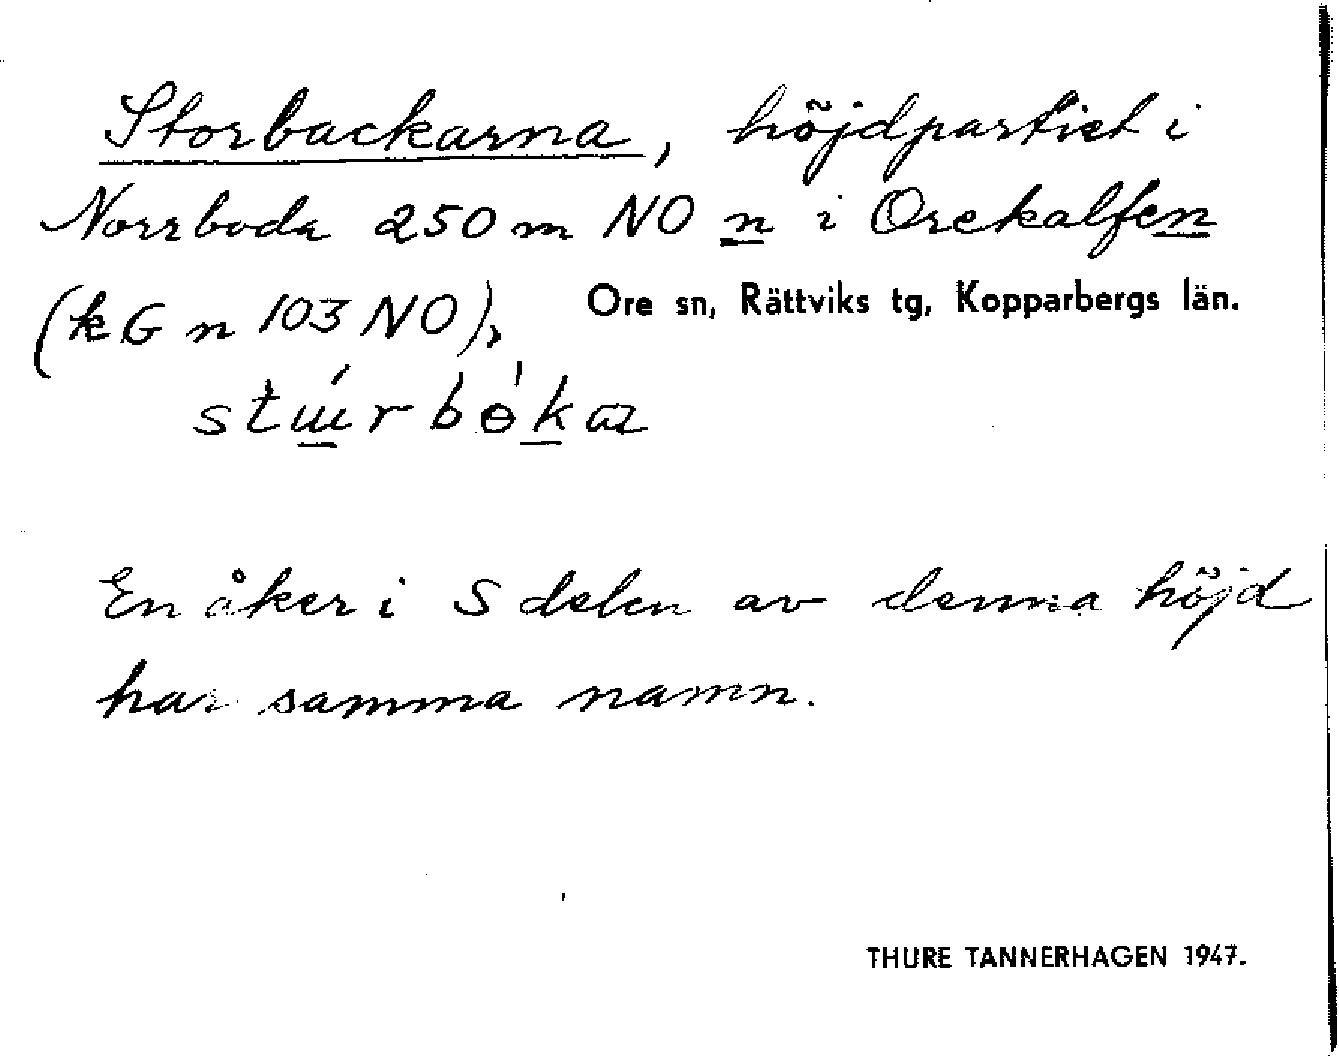 Storbackarna, höjdpartiet i
Norrboda 250 m NO n i Orekalfen
(k G n 103 NO), Ore sn, Rättviks tg, Kopparbergs län.
En åker i S delen av denna höjd
har samma namn.
THURE TANNERHAGEN 1947.